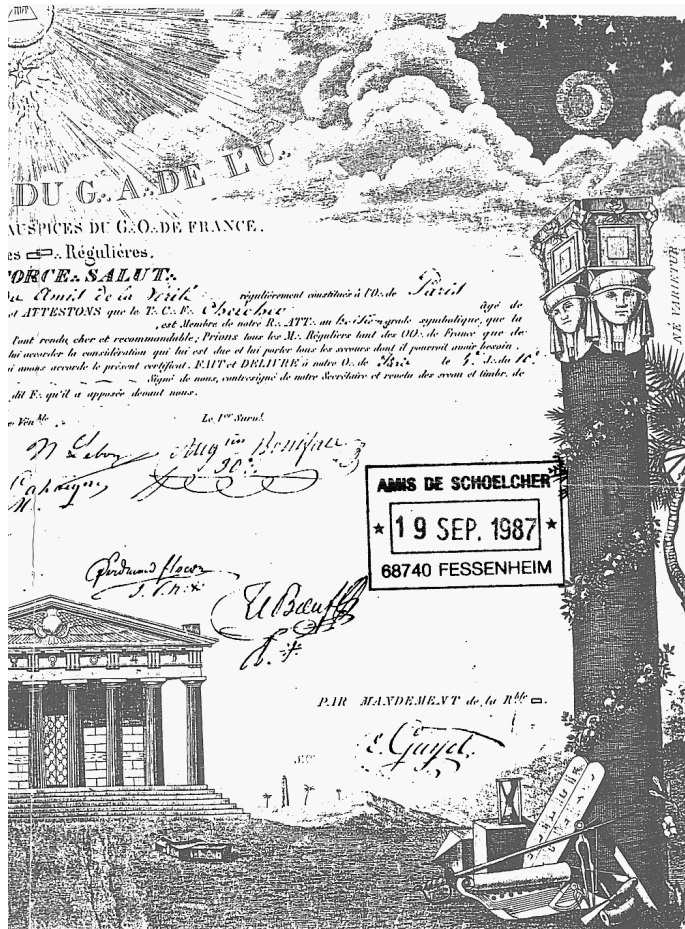 DU G∴ A∴ DE L'U∴
AUSPICES DU G∴ O∴ DE FRANCE.
es ▭∴ Régulières.
ORCE∴ SALUT∴
Amis de la Vérité régulièrement constituée à l'O∴ de Paris
et ATTESTONS que le T∴ C∴ F∴ Chelcher âgé de
, est Membre de notre R∴ ATT∴ au troisième grade symbolique, que la
l'ont rendu cher et recommandable; Prions tous les M∴ Réguliers tant des OO∴ de France que de
lui accorder la considération qui lui est due et lui porter tous les secours dont il pourroit avoir besoin.
avons accordé le présent certificat. FAIT et DELIVRÉ à notre O∴ de Paris le 4e J∴ du 10e
Signé de nous, contresigné de notre Secrétaire et revêtu des sceau et timbre, de
dit F∴ qu'il a apposée devant nous.
Le 1er Survt
Lebon
Boniface
AMIS DE SCHOELCHER
★ 19 SEP. 1987 ★
68740 FESSENHEIM
Ferdinand flocon
Bœuf
PAR MANDEMENT de la Rble ▭
NE VARIETUR